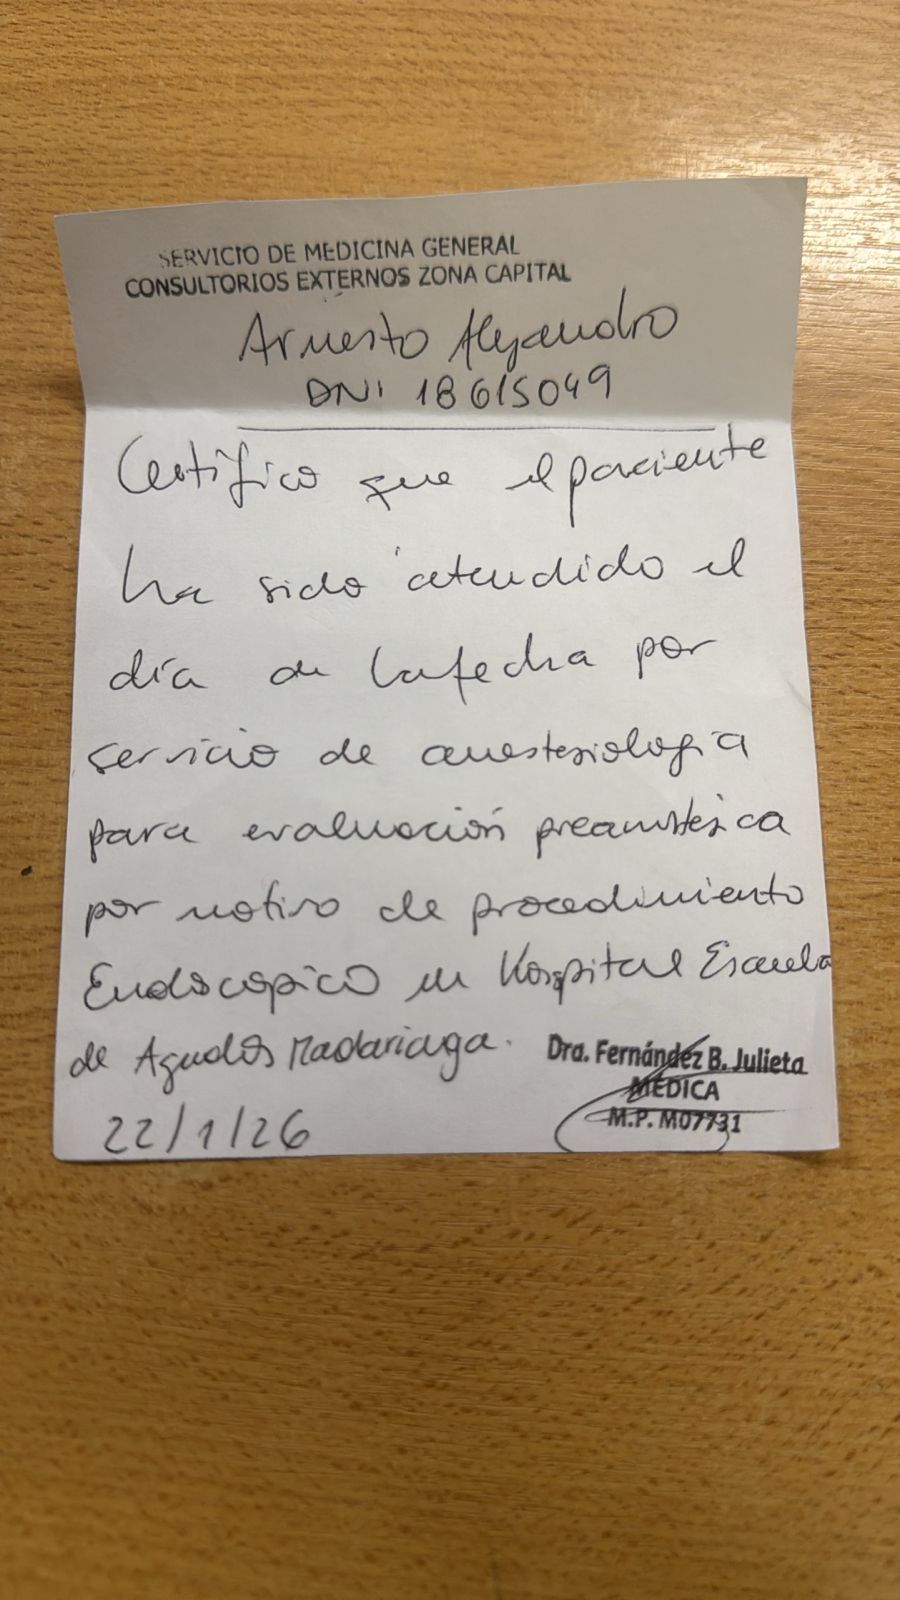 SERVICIO DE MEDICINA GENERAL
CONSULTORIOS EXTERNOS ZONA CAPITAL
Arnesto Alejandro
DNI 18615049
Certifico que el paciente
ha sido atendido el
día de la fecha por
servicio de anestesiología
para evaluación preanestésica
por motivo de procedimiento
Endoscopico en Hospital Escuela
de Agudos Madariaga.
Dra. Fernández B. Julieta
MÉDICA
M.P. M07731
22/1/26